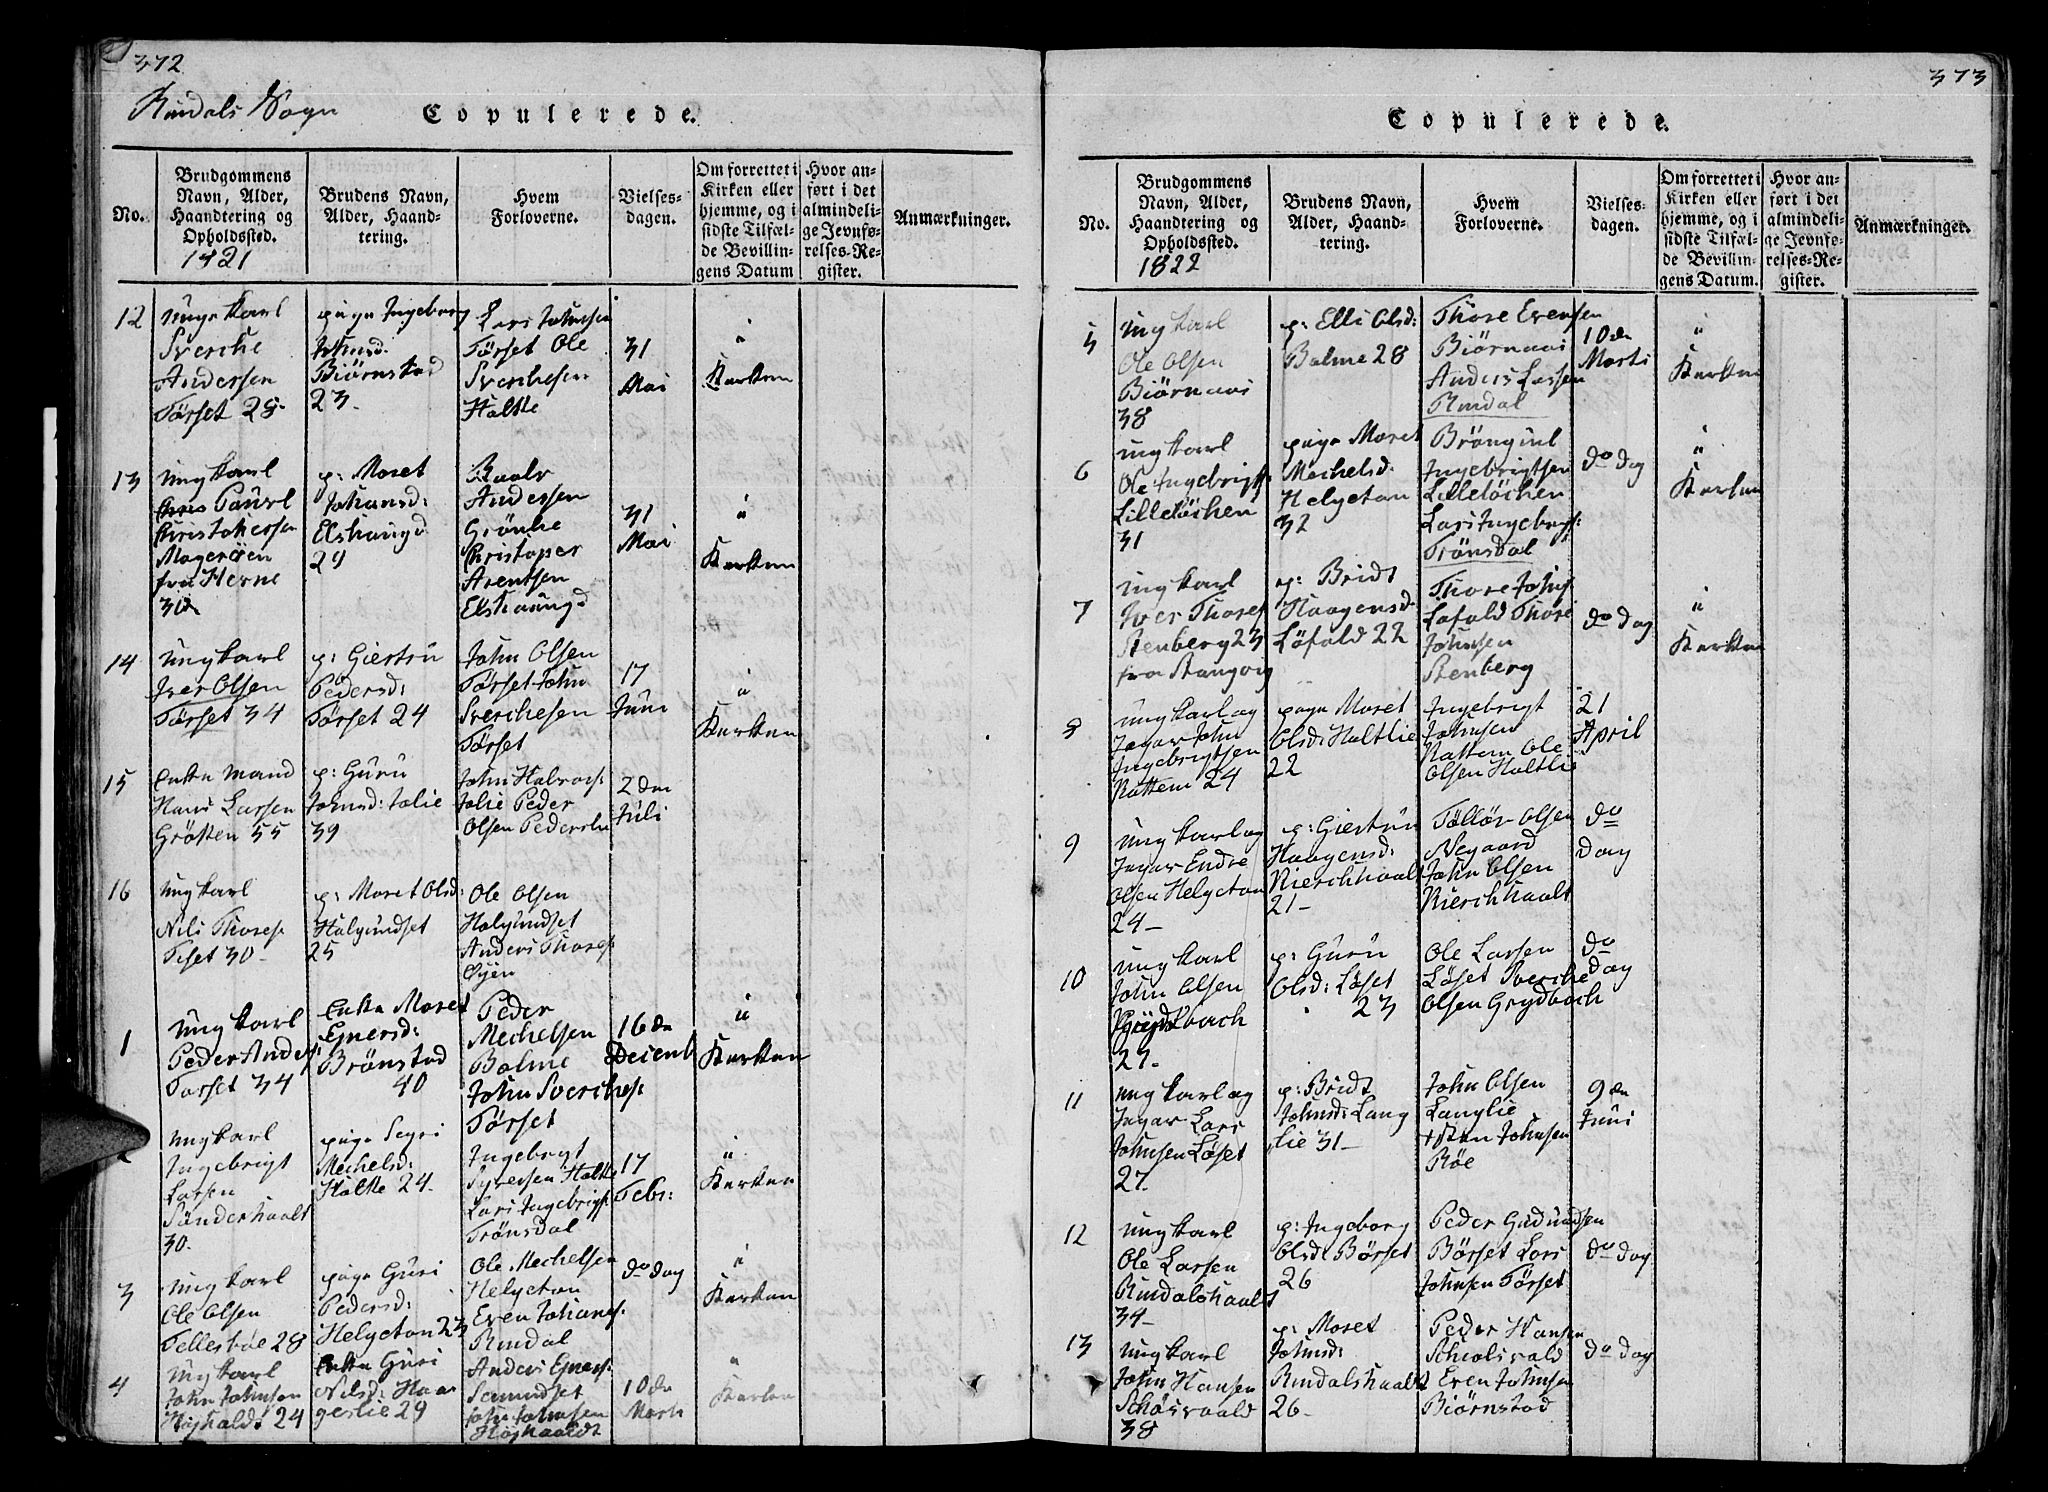 372
Rindals Sogn
Copulerede.
No.
Brudgommens Navn, Alder, Haandtering og Opholdssted.
1821
Brudens Navn, Alder, Haandtering.
Hvem Forloverne.
Vielses-dagen.
Om forrettet i Kirken eller hjemme, og i sidste Tilfælde Bevillingens Datum
Hvor anført i det almindelige Jevnførelses-Register.
Anmærkninger.
12
ungkarl
Sverche
Andersen
Törset 28
pige Ingeborg
Johnsd.
Biörnstad
23
Lars Johnsen
Törset Ole
Sverchesen
Holtte
31
Mai
Kirken
13
ungkarl
Paul
Christophersen
Magerøien
fra Herne
30
p: Moret
Johansd:
Elshaugd
29
Andersen
Grönlie
Christopher
Arentsen
Elshaugd
31
Mai
Kirken
14
ungkarl
Iver Olsen
Törset 34
p: Giertru
Pedersd:
Törset 24
John Olsen
Törset John
Sverchesen
Törset
17
Juni
Kirken
15
Enke mand
Hans Larsen
Grötten 55
p: Guru
Johnsd: Jolie
39
John Halvors:
Jolie Peder
Olsen Pederslie
2 den
Juli
16
ungkarl
Nils Thores
Tiset 30
p: Moret Olsd:
Halgundset
25
Ole Olsen
Halgundset
Anders Thores
Öyen
1
ungkarl
Peder Anders:
Torset 34
Enke Moret
Ejnersd:
Brönstad
40
Peder
Mechelsen
Bolme
John Sverches:
Törset
16 dn
Decemb
Kirken
2
ungkarl
Ingebrigt
Larsen
Sönderhaalt
30
pige Segri
Mechelsd:
Holtte 24
Ingebrigt
Syversen Holtte
Lars Ingebrigts:
Trönsdal
17
Febr:
Kirken
3
ungkarl
Ole Olsen
Tellesböe 28
pige Guri
Pedersd:
Helgeton 23
Ole Mechelsen
Helgeton
Even Johanes:
Rindal
do dag
Kirken
4
ungkarl
John Johnsen
Högkaldt 24
Enke Guri
Nilsd: Haa
geslie 29
Anders Ejners:
Semundset
John Johnsen
Högkaaldt
10 dn
Marti
Kirken
373
Copulerede.
No.
Brudgommens Navn, Alder, Haandtering og Opholdssted.
1822
Brudens Navn, Alder, Haandtering.
Hvem Forloverne.
Vielses-dagen.
Om forrettet i Kirken eller hjemme, og i sidste Tilfælde Bevillingens Datum.
Hvor anført i det almindelige Jevnførelses-Register.
Anmærkninger.
5
ungkarl
Ole Olsen
Biörnaas
38
p: Elli Olsd:
Bolme 28
Thore Evensen
Biörnaas
Anders Larsen
Rindal
10 dn
Marti
Kirken
6
ungkarl
Ole Ingebrigts:
Lillelöchen
31
pige Moret
Mechelsd:
Helgeton
32
Bröngiul
Ingebrigtsen
Lillelöchen
Lars Ingebrigs:
Trönsdal
do dag
Kirken
7
ungkarl
Iver Thores
Stenberg 23
fra Stangvig
p: Bridt
Haagensd:
Löfald 22
Thore Johns
Lofald Thore
Johnsen
Stenberg
do dag
Kirken
8
ungkarl og
Jæger John
Ingebrigtsen
Nattem 24
pige Moret
Olsd: Holtlie
22
Ingebrigt
Johnsen
Nattem Ole
Olsen Holtlie
21
April
9
ungkarl og
Jæger Endre
Olsen Helgeton
24
p: Giertru
Haagensd:
Nierchhaalt
21
Töllör Olsen
Negaard
John Olsen
Nierchhaalt
do
dag
10
ungkarl
John Olsen
27
p: Guru
Olsd: Löset
23
Ole Larsen
Löset Sverche
Olsen Grydbach
do
dag
11
ungkarl og
Jæger Lars
Johnsen Löset
27
p: Bridt
Johnsd: Lang
lie 31
John Olsen
Langlie
Johnsen
Röe
9 dn
Juni
12
ungkarl
Ole Larsen
Rindalshaalt
34
p: Ingeborg
Olsd: Börset
26
Peder Gudmundsen
Börset Lars
Johnsen Törset
do dag
13
ungkarl
John Hansen
Schölsvaald
38
p: Moret
Johnsd:
Rindalshaalt
26
Peder Hansen
Scheolsvald
Even Johnsen
Biörnstad
do dag